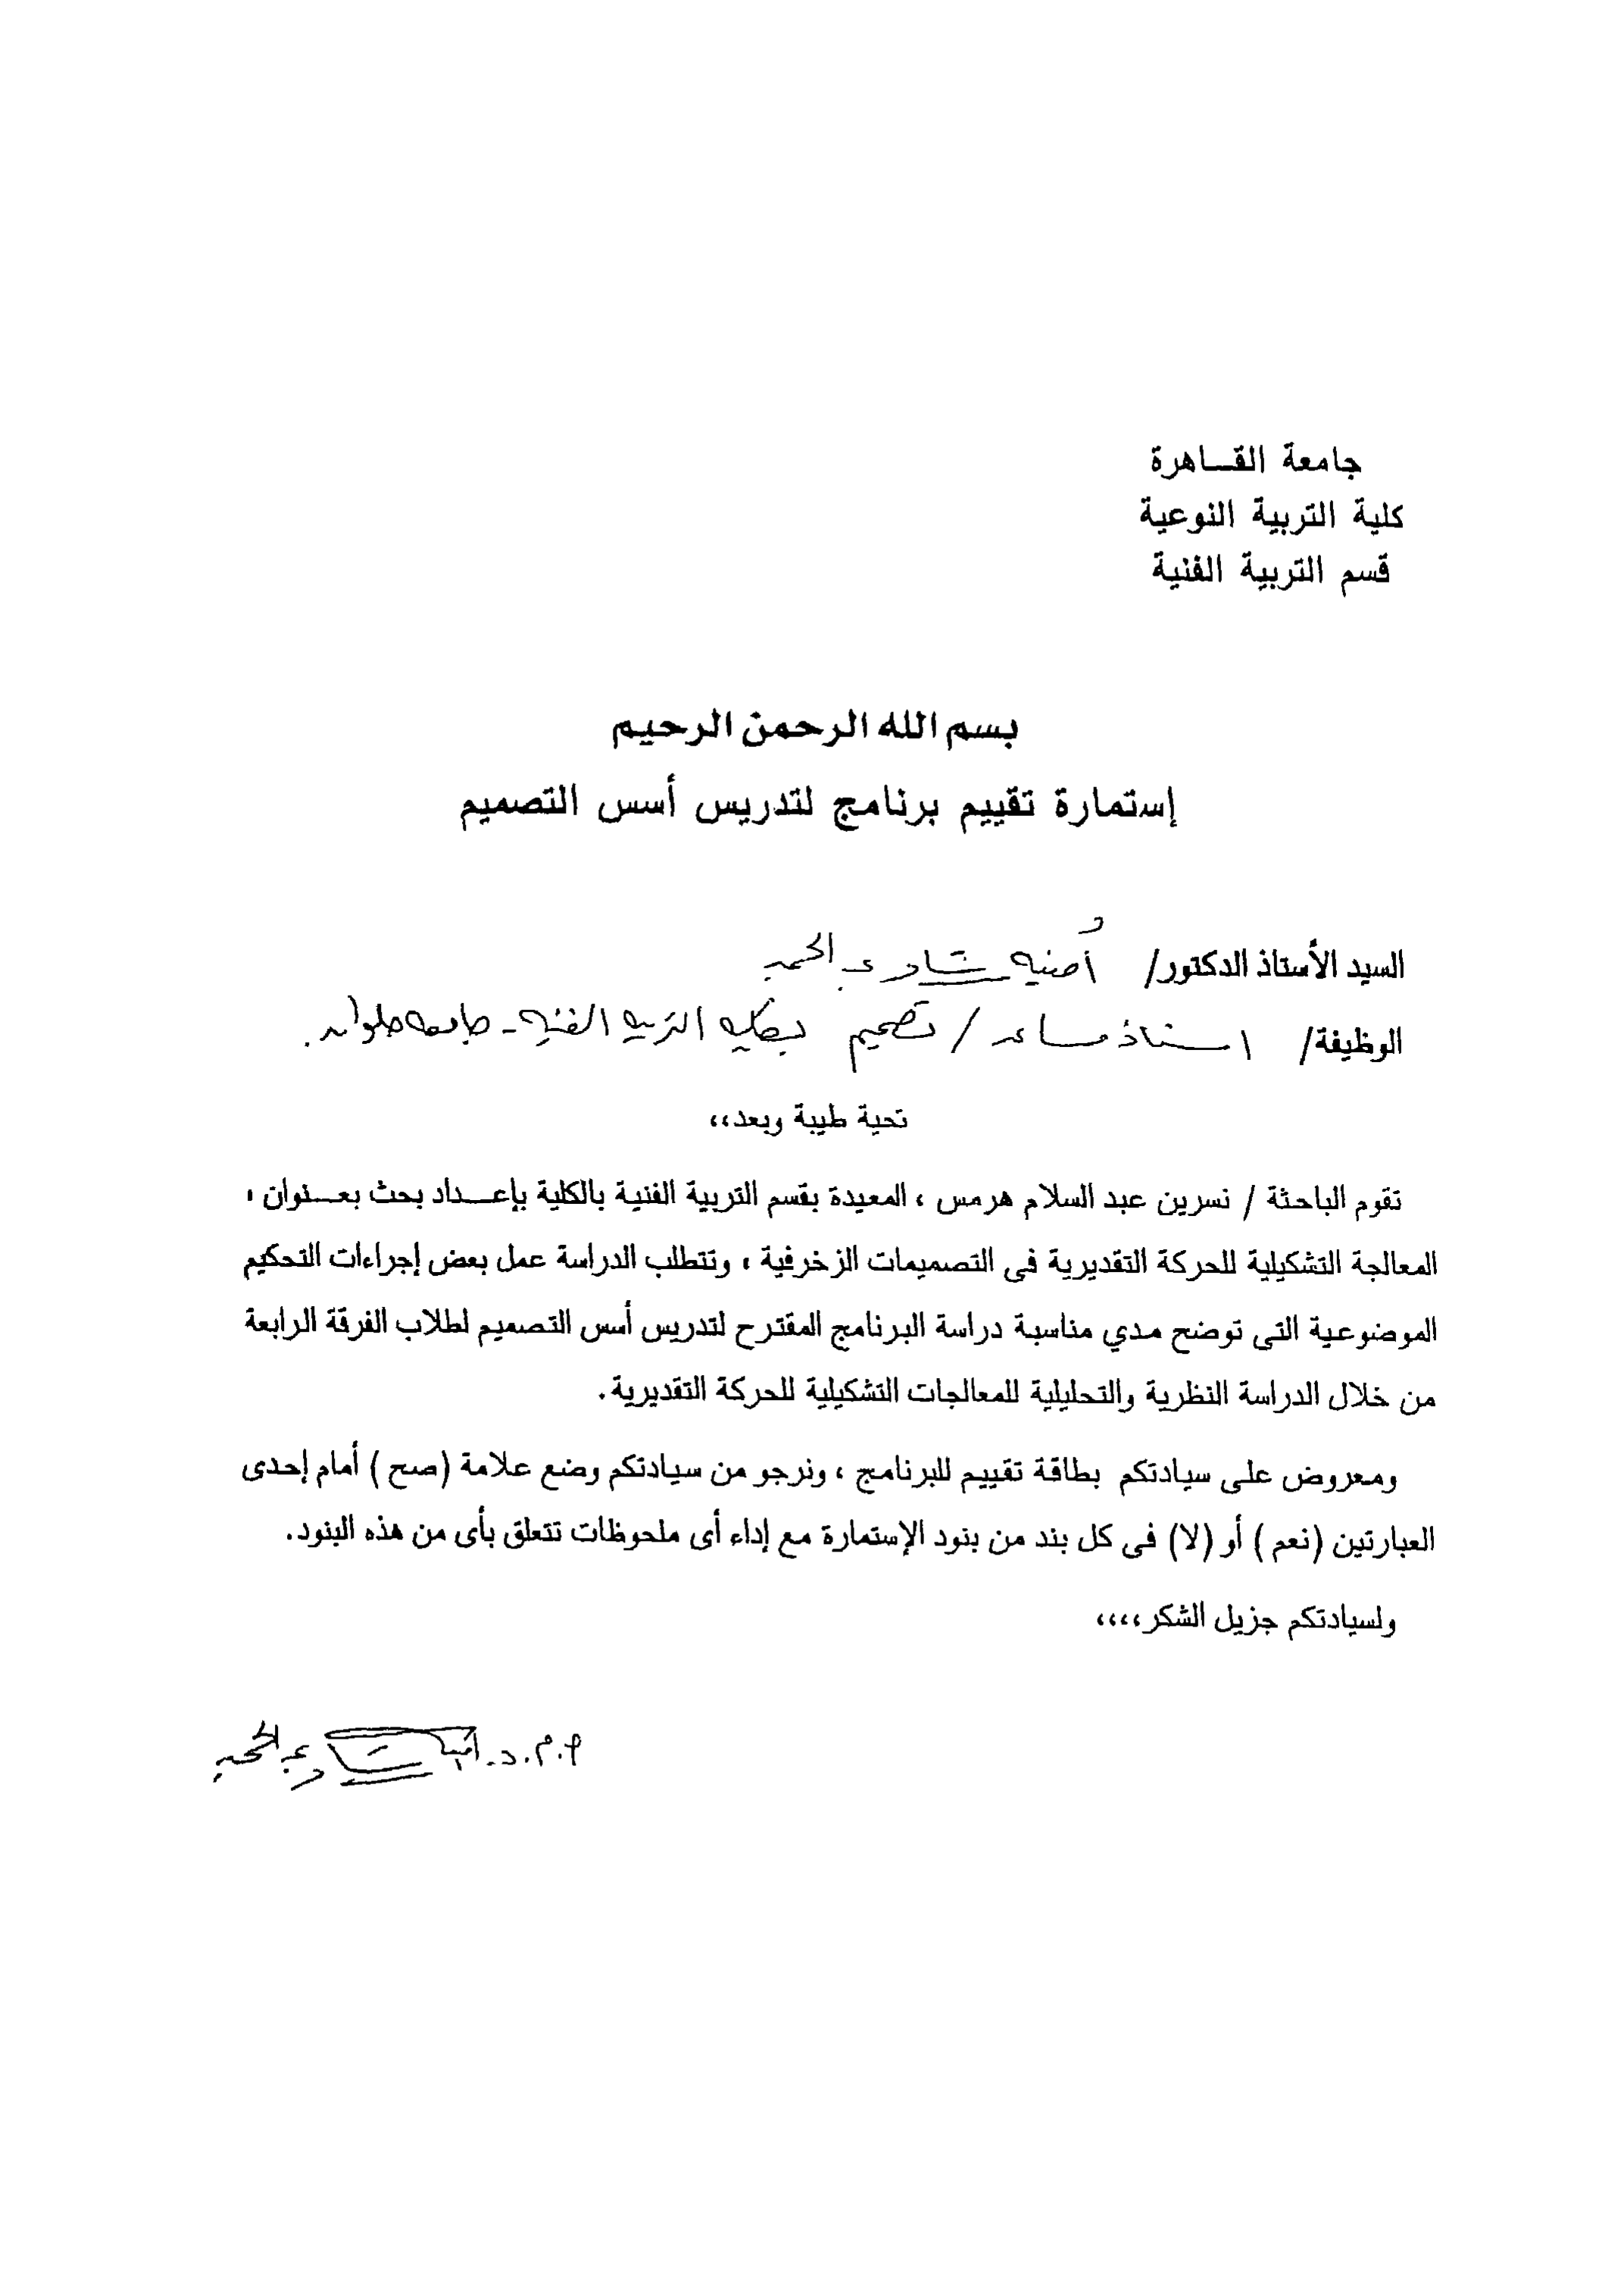 جامعة القساهرة
كلية التربية النوعية
قسم التربية الفنية
بسم الله الرحمن الرحيم
إستمارة تقييم برنامج لتدريس أسس التصميم
السيد الأستاذ الدكتور/ أمنيه شادى عبد الحميد
الوظيفة/ استاذ مساعد / تصميم بكلية التربيه الفنيه - جامعه حلوان.
تحية طيبة وبعد،،
تقوم الباحثة / نسرين عبد السلام هرمس ، المعيدة بقسم التربية الفنية بالكلية بإعداد بحث بعنوان ،
المعالجة التشكيلية للحركة التقديرية فى التصميمات الزخرفية ، وتتطلب الدراسة عمل بعض إجراءات التحكيم
الموضوعية التى توضح مدي مناسبة دراسة البرنامج المقترح لتدريس أسس التصميم لطلاب الفرقة الرابعة
من خلال الدراسة النظرية والتحليلية للمعالجات التشكيلية للحركة التقديرية.
ومعروض على سيادتكم بطاقة تقييم للبرنامج ، ونرجو من سيادتكم وضع علامة (صح ) أمام إحدى
العبارتين (نعم ) أو (لا) فى كل بند من بنود الإستمارة مع إداء أى ملحوظات تتعلق بأى من هذه البنود.
ولسيادتكم جزيل الشكر،،،،